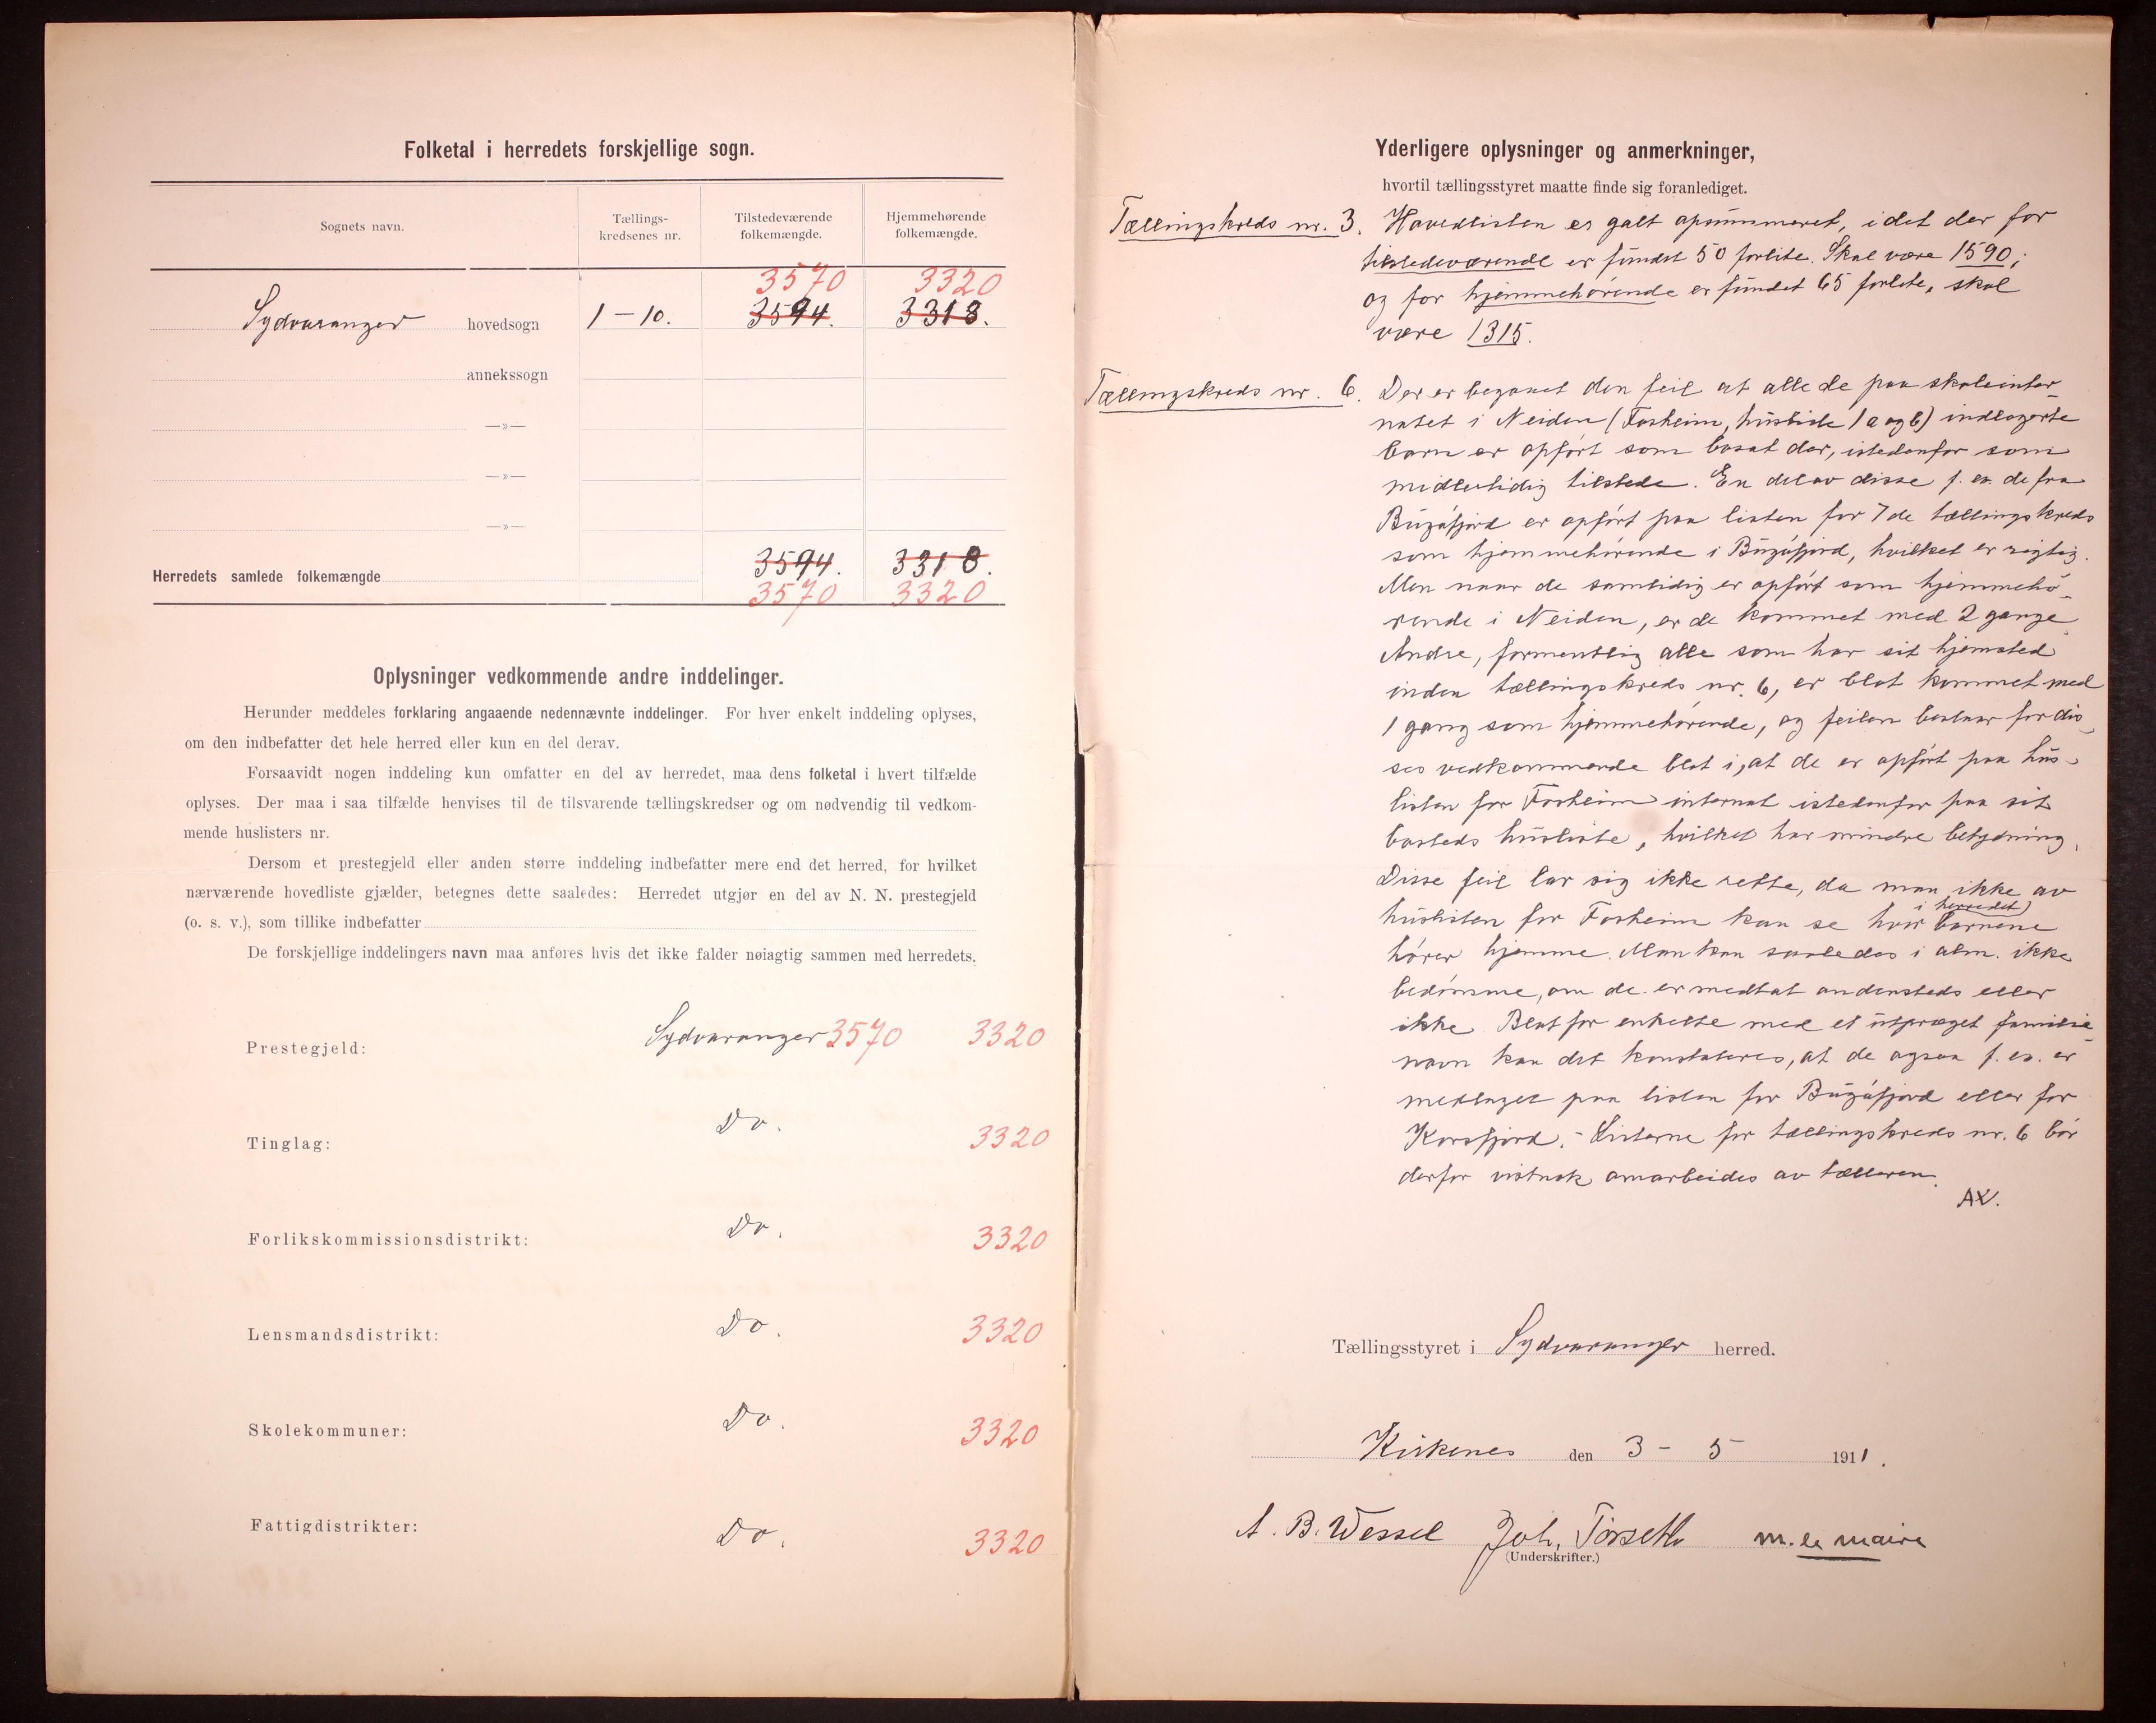 Folketal i herredets forskjellige sogn.
Sognets navn.
Tællings-
kredsenes nr.
Tilstedeværende
folkemængde.
Hjemmehørende
folkemængde.
3570 3320
Sydvaranger hovedsogn 1 – 10. 3594. 3318.
annekssogn
—»—
—»—
—»—
3594. 3318
Herredets samlede folkemængde
3570 3320
Oplysninger vedkommende andre inddelinger.
Herunder meddeles forklaring angaaende nedennævnte inddelinger. For hver enkelt inddeling oplyses,
om den indbefatter det hele herred eller kun en del derav.
Forsaavidt nogen inddeling kun omfatter en del av herredet, maa dens folketal i hvert tilfælde
oplyses. Der maa i saa tilfælde henvises til de tilsvarende tællingskredser og om nødvendig til vedkom-
mende huslisters nr.
Dersom et prestegjeld eller anden større inddeling indbefatter mere end det herred, for hvilket
nærværende hovedliste gjælder, betegnes dette saaledes: Herredet utgjør en del av N. N. prestegjeld
(o. s. v.), som tillike indbefatter
De forskjellige inddelingers navn maa anføres hvis det ikke falder nøiagtig sammen med herredets.
Prestegjeld: Sydvaranger 3570 3320
Tinglag: Do. 3320
Forlikskommissionsdistrikt: Do. 3320
Lensmandsdistrikt: Do. 3320
Skolekommuner: Do. 3320
Fattigdistrikter: Do. 3320
Yderligere oplysninger og anmerkninger,
hvortil tællingsstyret maatte finde sig foranlediget.
Tællingskreds nr. 3. Hovedlisten er galt opsummeret, idet der for
tilstedeværende er fundet 50 forlite. Skal være 1590;
og for hjemmehørende er fundet 65 forlite, skal
være 1315.
Tællingskreds nr. 6. Der er begaaet den feil at alle de paa skoleinter-
natet i Neiden (Fosheim, husliste 1 a og b) indlogerte
barn er opført som bosat der, istedenfor som
midlertidig tilstede. En del av disse f. ex. de fra
Bugøfjord er opført paa listen for 7de tællingskreds
som hjemmehørende i Bugøfjord, hvilket er rigtig.
Men naar de samtidig er opført som hjemmehø-
rende i Neiden, er de kommet med 2 gange.
Andre, formentlig alle som har sit hjemsted
inden tællingskreds nr. 6, er blot kommet med
1 gang som hjemmehørende, og feilen bestaar for dis-
ses vedkommende blot i, at de er opført paa hus-
listen for Fosheim internat istedenfor paa sit
bosteds husliste, hvilket har mindre betydning.
Disse feil lar sig ikke rette, da man ikke av
huslisten for Fosheim kan se hvor i herredet barnene
hører hjemme. Man kan saaledes i alm. ikke
bedømme, om de er medtat andensteds eller
ikke. Blot for enkelte med et utpræget familie-
navn kan det konstateres, at de ogsaa f. ex. er
medtaget paa listen for Bugøfjord eller for
Korsfjord. – Listerne for tællingskreds nr. 6 bør
derfor vistnok omarbeides av tælleren.
AW.
Tællingsstyret i Sydvaranger herred.
Kirkenes den 3 – 5 1911.
A. B. Wessel Joh. m. le maire
(Underskrifter.)